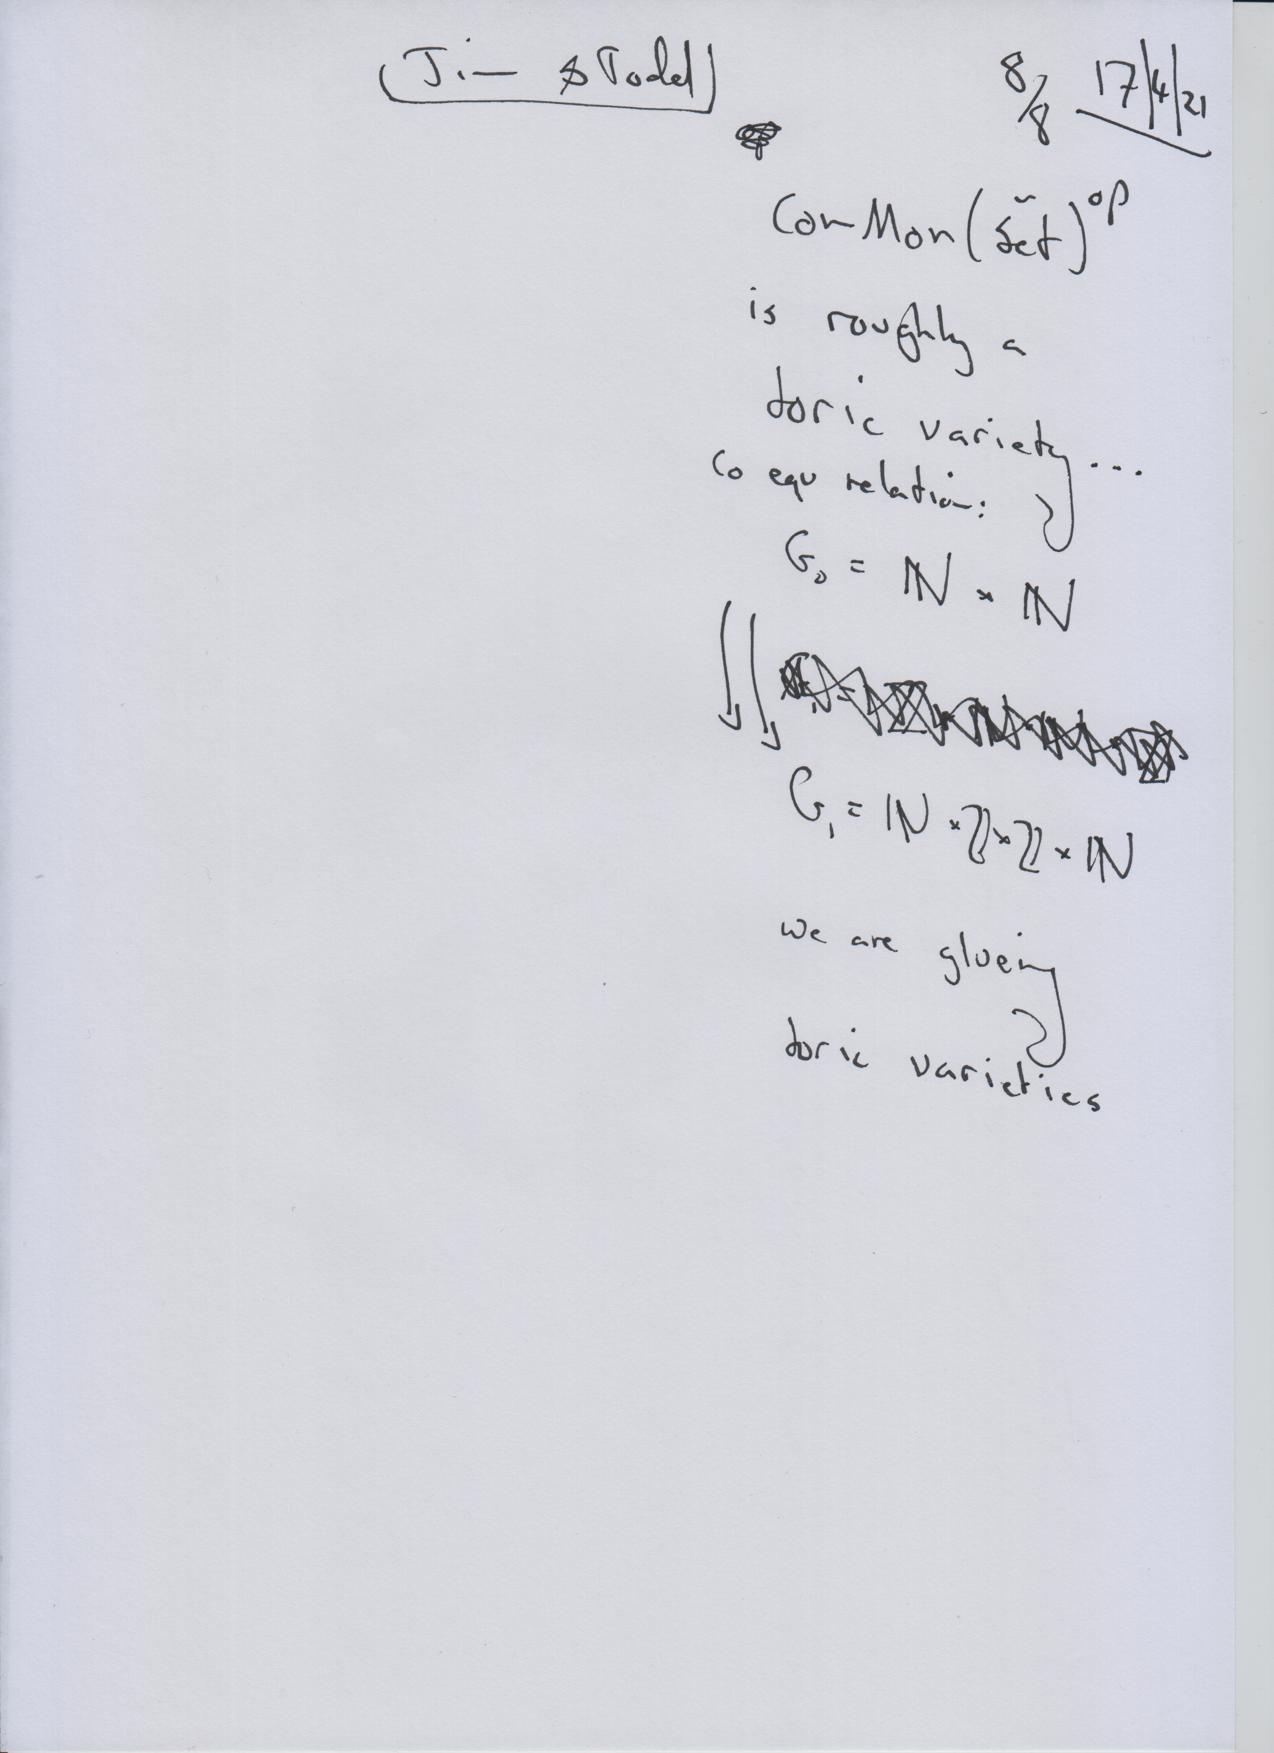 Jim & Todd
8/8 17/4/21
ComMon(Set)^op
is roughly a
toric variety...
co equ relation:
G₀ = ℕ × ℕ
G₁ = ℕ × ℤ × ℤ × ℕ
we are glueing
toric varieties